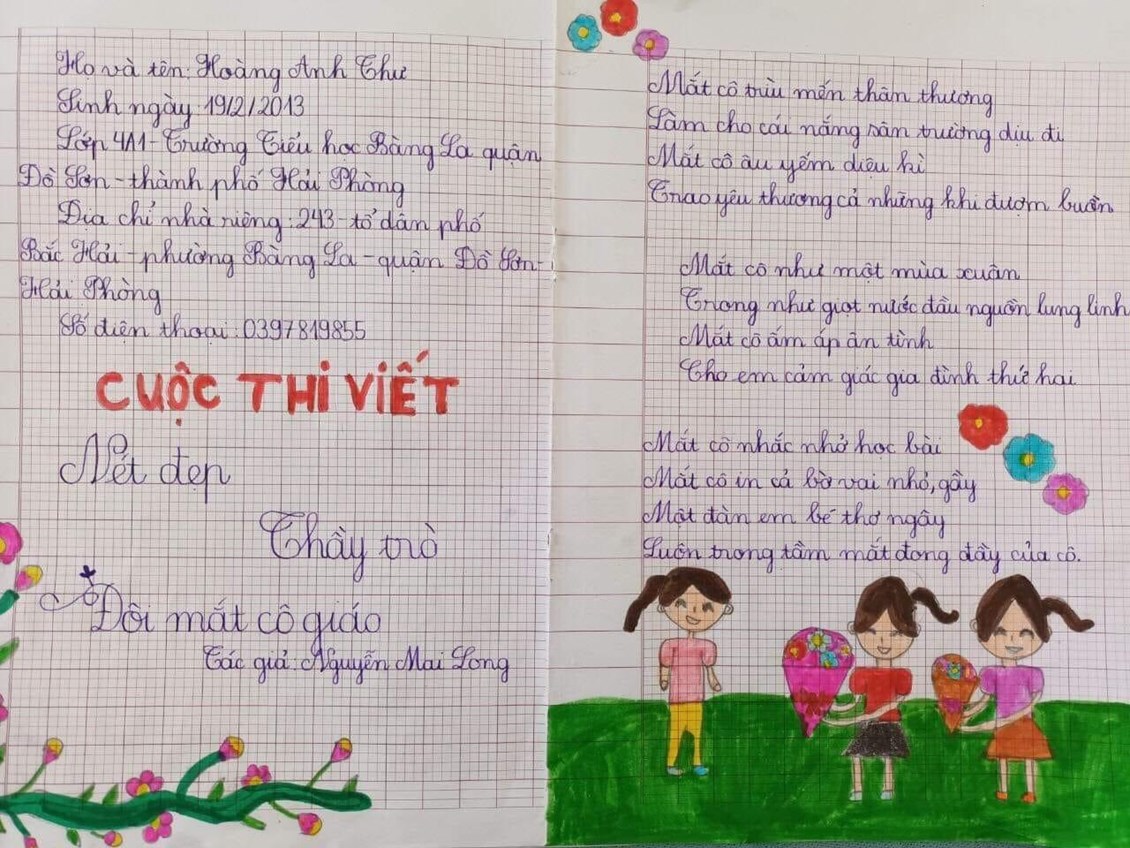 Họ và tên: Hoàng Anh Thư
Sinh ngày 19/2/2013
Lớp 4A1-Trường Tiểu học Bàng La quân
Đồ Sơn-thành phố Hải Phòng
Địa chỉ nhà riêng: 243-tổ dân phố
Bắc Hải-phường Bàng La-quận Đồ Sơn-
Hải Phòng
Số điện thoại: 0397819855
CUỘC THI VIẾT
Nét đẹp
Thầy trò
Đôi mắt cô giáo
Tác giả: Nguyễn Mai Long
Mắt cô trìu mến thân thương
Làm cho cái nắng sân trường dịu đi
Mắt cô âu yếm diệu kì
Trao yêu thương cả những khi đượm buồn
Mắt cô như một mùa xuân
Trong như giọt nước đầu nguồn lung linh
Mắt cô ấm áp ân tình
Cho em cảm giác gia đình thứ hai
Mắt cô nhắc nhở học bài
Mắt cô in cả bờ vai nhỏ, gầy
Một đàn em bé thơ ngây
Luôn trong tầm mắt đong đầy của cô.